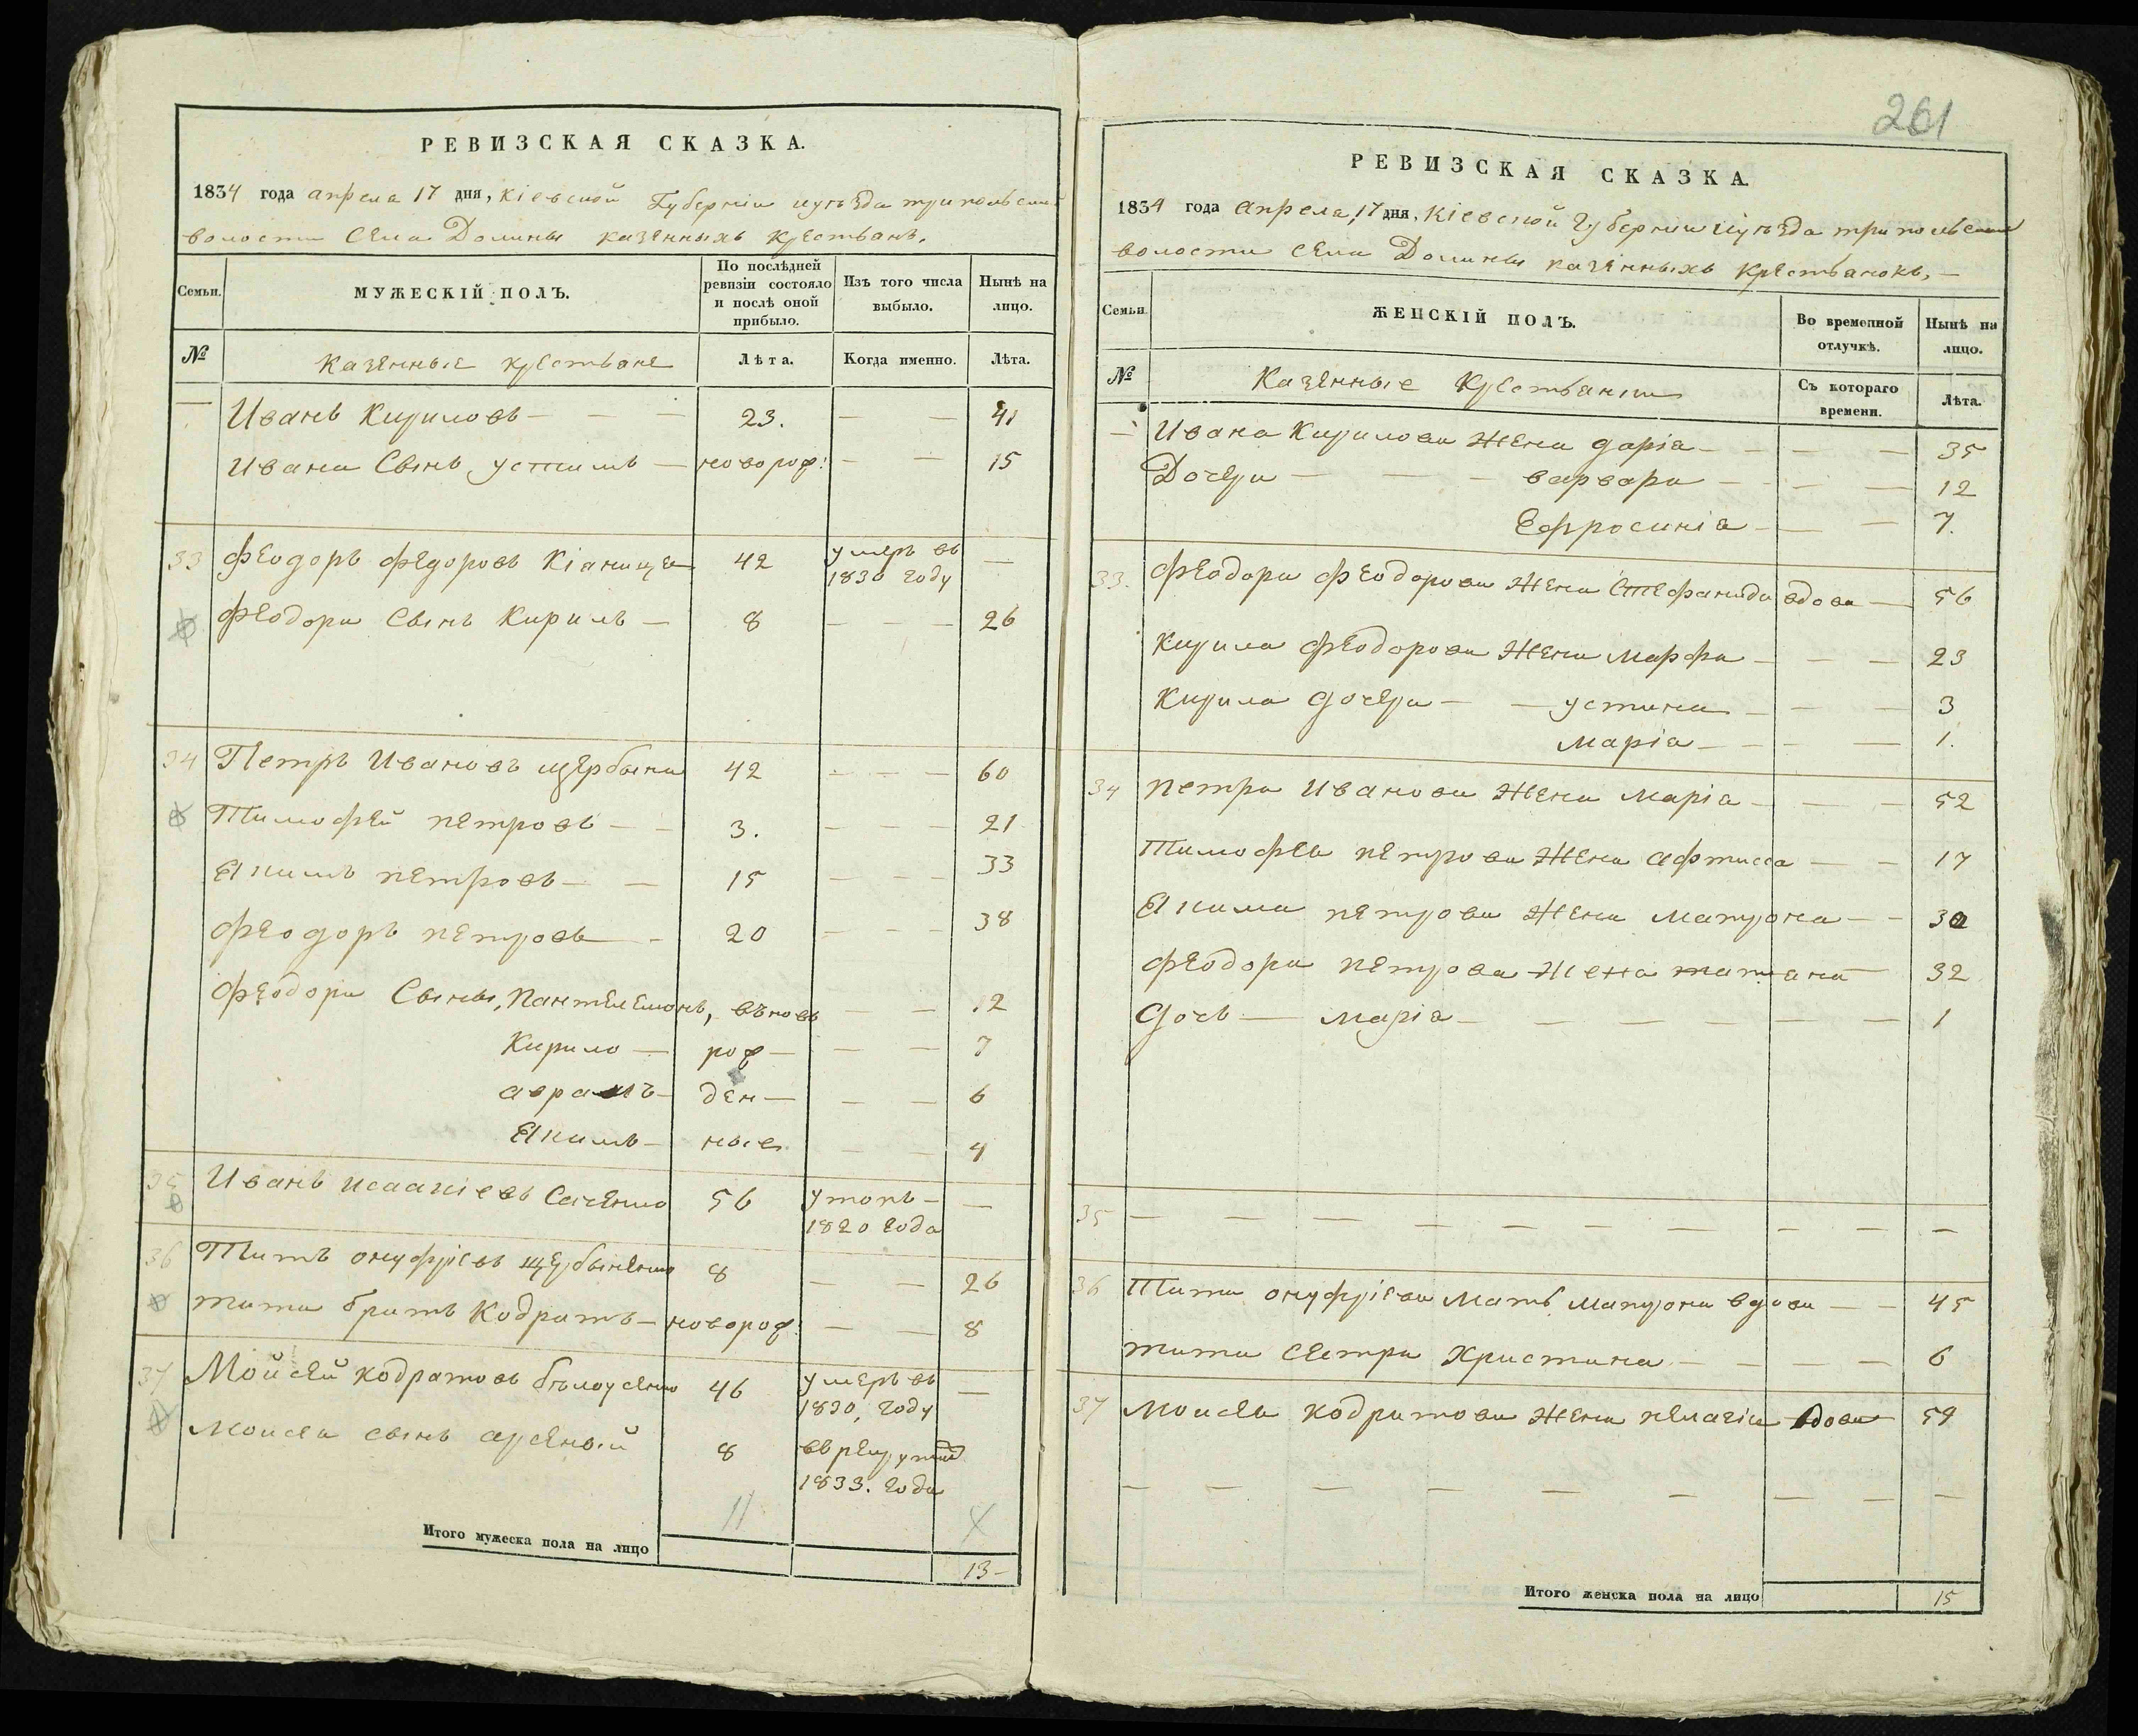 РЕВИЗСКАЯ СКАЗКА.
1834 года апреля 17 дня, Кіевской Губерніи и уѣзда трипольской
волости Села Долины казенныхъ крестьянъ.
Семьи. МУЖЕСКІЙ ПОЛЪ. По послѣдней ревизіи состояло и послѣ оной прибыло. Изъ того числа выбыло. Нынѣ на лицо.
№ казенные крестьяне Лѣта. Когда именно. Лѣта.
— Иванъ Кириловъ — — — 23. — — 41
Ивана Сынъ устимъ — новорож: — — 15
33 Феодоръ федоровъ Кіаница 42 умеръ въ 1830 году —
Феодора Сынъ Кирилъ — 8 — — — 26
34 Петръ Ивановъ щербына 42 — — — 60
Тимофей петровъ — — 3. — — — 21
Якимъ петровъ — — 15 — — — 33
Феодоръ петровъ — 20 — — — 38
Феодора Сыны, Пантелемонъ, вновь — — 12
Кирило — рож — — — 7
аврамъ — ден — — — 6
Якимъ — ные — — 4
35 Иванъ исаакіевъ 56 утопъ — 1820 года —
36 Титъ онуфріевъ щербыненко 8 — — 26
тита братъ Кодратъ — новорож: — — 8
37 Мойсей кодратовъ бѣлоусенко 46 умеръ въ 1830, году —
Моисея сынъ арсеный 8 въ рекруты 1833. года
11
Итого мужеска пола на лицо 13 —
261
РЕВИЗСКАЯ СКАЗКА.
1834 года апреля 17 дня, Кіевской Губерніи и уѣзда трипольской
волости села Долины казенныхъ крестьянокъ, —
Семьи. ЖЕНСКІЙ ПОЛЪ. Во временной отлучкѣ. Нынѣ на лицо.
№ Казенные Крестьянки Съ котораго времени. Лѣта.
— Ивана Кирилова жена дарія — — — — 35
Дочери — — — варвара — — — — 12
Ефросинія — — — 7.
33. Феодора феодорова жена Стефанида вдова — 56
Кирила феодорова жена марфа — — — 23
Кирила дочери — — устина — — — 3
марія — — — — 1.
34 петра иванова жена марія — — — 52
Тимофея петрова жена афтисса — — 17
Якима петрова жена матрона — — 30
феодора петрова жена татіана — 32
дочь — марія — — — — — — — 1
35 — — — — — — — — — —
36 Тита онуфріева мать матрона вдова — — 45
тита сестра Христина — — — — 6
37 Моисея кодратова жена пелагія вдова — 59
— — — — — — — — —
Итого женска пола на лицо 15